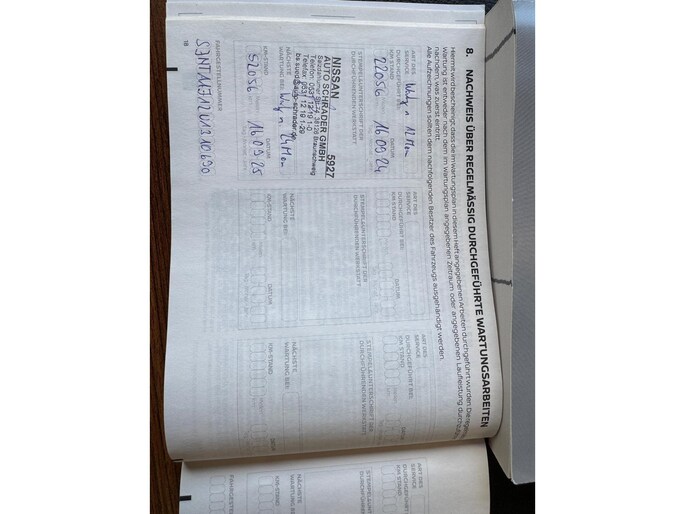 8. NACHWEIS ÜBER REGELMÄSSIG DURCHGEFÜHRTE WARTUNGSARBEITEN
Hiermit wird bescheinigt, dass die im Wartungsplan in diesem Heft angegebenen Arbeiten durchgeführt wurden. Die
Wartung ist entweder nach dem im Wartungsplan angegebenen Zeitraum oder angegebenen Laufleistung
nachdem, was zuerst eintritt.
Alle Aufzeichnungen sollten dem nachfolgenden Besitzer des Fahrzeugs ausgehändigt werden.
ART DES
SERVICE: 12 Mon
DURCHGEFÜHRT BEI:
KM-STAND DATUM
22056 16 09 24
STEMPEL/UNTERSCHRIFT DER
DURCHFÜHRENDEN WERKSTATT
NISSAN 5927
AUTO SCHRADER GMBH
38126 Braunschweig
Telefon: 0531
Telefax: 0531
NÄCHSTE
WARTUNG BEI: 24 Mon
KM-STAND DATUM
52056 16 09 25
ART DES
SERVICE
DURCHGEFÜHRT BEI:
KM-STAND DATUM
STEMPEL/UNTERSCHRIFT DER
DURCHFÜHRENDEN WERKSTATT
NÄCHSTE
WARTUNG BEI:
KM-STAND DATUM
ART DES
SERVICE
DURCHGEFÜHRT BEI:
KM-STAND
STEMPEL/UNTERSCHRIFT DER
DURCHFÜHRENDEN WERKSTATT
NÄCHSTE
WARTUNG BEI:
KM-STAND DATUM
FAHRGESTELLNUMMER
18
ART DES
SERVICE
DURCHGEFÜHRT
KM-STAND
NÄCHSTE
WARTUNG BEI
KM-STAND